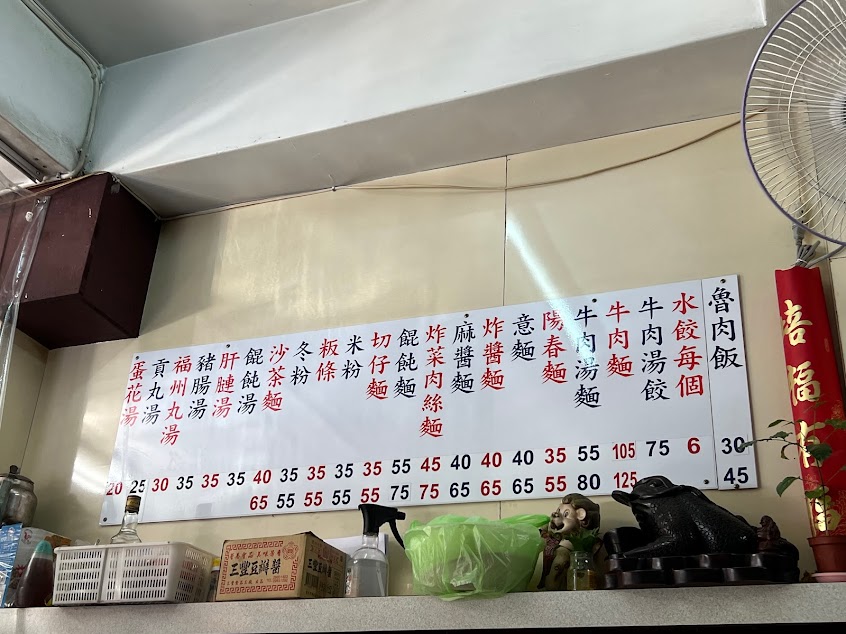 魯肉飯 30 45
水餃每個 6
牛肉湯餃 75
牛肉麵 105 125
牛肉湯麵 55 80
陽春麵 35 55
意麵 40 65
炸醬麵 40 65
麻醬麵 40 65
炸菜肉絲麵 45 75
餛飩麵 55 75
切仔麵 35 55
米粉 35 55
粄條 35 55
冬粉 35 55
沙茶麵 40 65
餛飩湯 35
肝腱湯 35
豬腸湯 35
福州丸湯 30
貢丸湯 25
蛋花湯 20
三豐豆瓣醬
三豐豆瓣醬